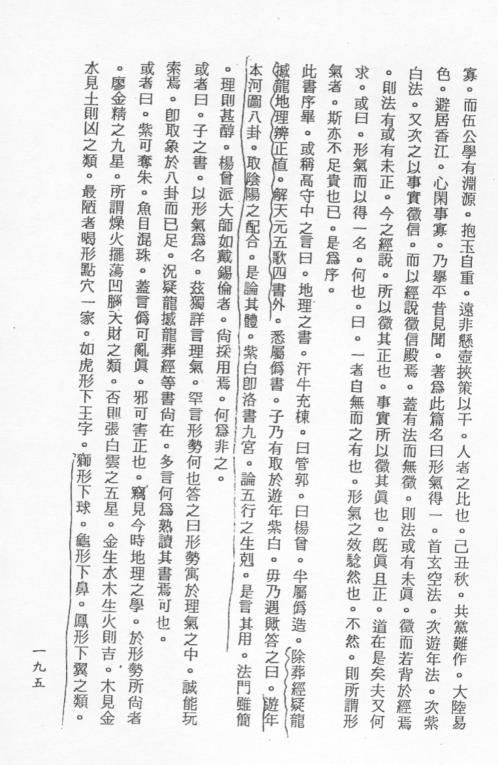 寡。而伍公學有淵源。抱玉自重。遠非懸壺挾策以干。人者之比也。己丑秋。共黨難作。大陸易
色。避居香江。心閑事寡。乃擧平昔見聞。著爲此篇名曰形氣得一。首玄空法。次遊年法。次紫
白法。又次之以事實徵信。而以經說徵信殿焉。蓋有法而無徵。則法或有未眞。徵而若背於經焉
。則法有或有未正。今之經說。所以徵其正也。事實所以徵其眞也。旣眞且正。道在是矣夫又何
求。或曰。形氣而以得一名。何也。曰。一者自無而之有也。形氣之效騐然也。不然。則所謂形
氣者。斯亦不足貴也已。是爲序。
此書序畢。或稱高守中之言曰。地理之書。汗牛充棟。曰管郭。曰楊曾。半屬僞造。除葬經疑龍
撼龍地理辨正直。解天元五歌四書外。悉屬僞書。子乃有取於遊年紫白。毋乃過歟答之曰。遊年
本河圖八卦。取陰陽之配合。是論其體。紫白卽洛書九宮。論五行之生剋。是言其用。法門雖簡
。理則甚醇。楊曾派大師如戴錫倫者。尙採用焉。何爲非之。
或者曰。子之書。以形氣爲名。玆獨詳言理氣。罕言形勢何也答之曰形勢寓於理氣之中。誠能玩
索焉。卽取象於八卦而已足。況疑龍撼龍葬經等書尙在。多言何爲熟讀其書焉可也。
或者曰。紫可奪朱。魚目混珠。蓋言僞可亂眞。邪可害正也。竊見今時地理之學。於形勢所尙者
。廖金精之九星。所謂燥火擺蕩凹腦天財之類。否則張白雲之五星。金生水木生火則吉。木見金
水見土則凶之類。最陋者喝形點穴一家。如虎形下王字。獅形下球。龜形下鼻。鳳形下翼之類。
一九五